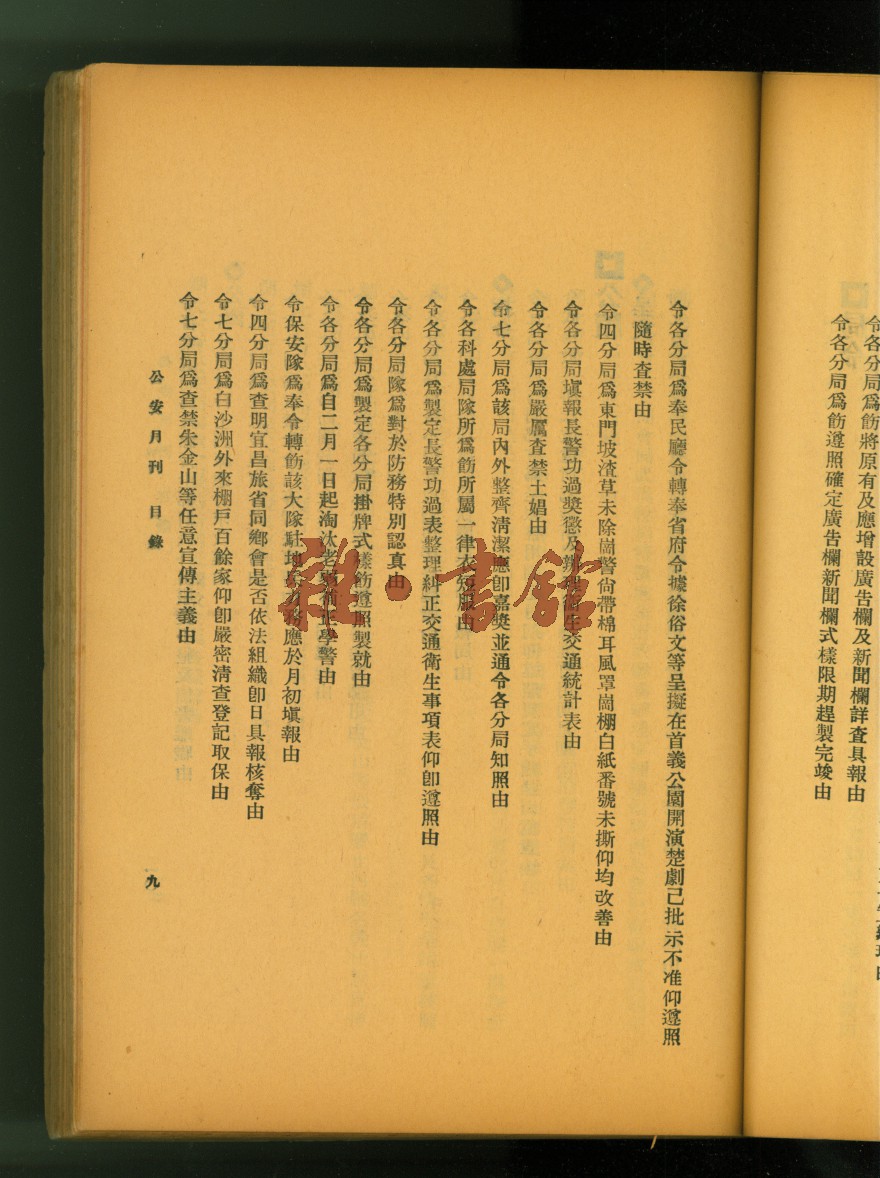 令各分局爲飭將原有及應增設廣告欄及新聞欄詳查具報由
令各分局爲飭遵照確定廣告欄新聞欄式樣限期趕製完竣由
令各分局爲奉民廳令轉奉省府令據徐俗文等呈擬在首義公園開演楚劇已批示不准仰遵照
隨時査禁由
令四分局爲東門坡渣草未除崗警尙帶棉耳風罩崗棚白紙番號未撕仰均改善由
令各分局塡報長警功過獎懲及辦理衛生交通統計表由
令各分局爲嚴厲査禁土娼由
令七分局爲該局內外整齊淸潔應卽嘉獎並通令各分局知照由
令各科處局隊所爲飭所屬一律衣短服由
令各分局爲製定長警功過表整理糾正交通衛生事項表仰卽遵照由
令各分局隊爲對於防務特別認真由
令各分局爲製定各分局掛牌式樣飭遵照製就由
令各分局爲自二月一日起淘汰老弱補足學警由
令保安隊爲奉令轉飭該大隊駐地 務應於月初塡報由
令四分局爲查明宜昌旅省同鄉會是否依法組織卽日具報核奪由
令七分局爲白沙洲外來棚戸百餘家仰卽嚴密淸查登記取保由
令七分局爲查禁朱金山等任意宣傳主義由
公安月刊 目錄
九
雜·書館